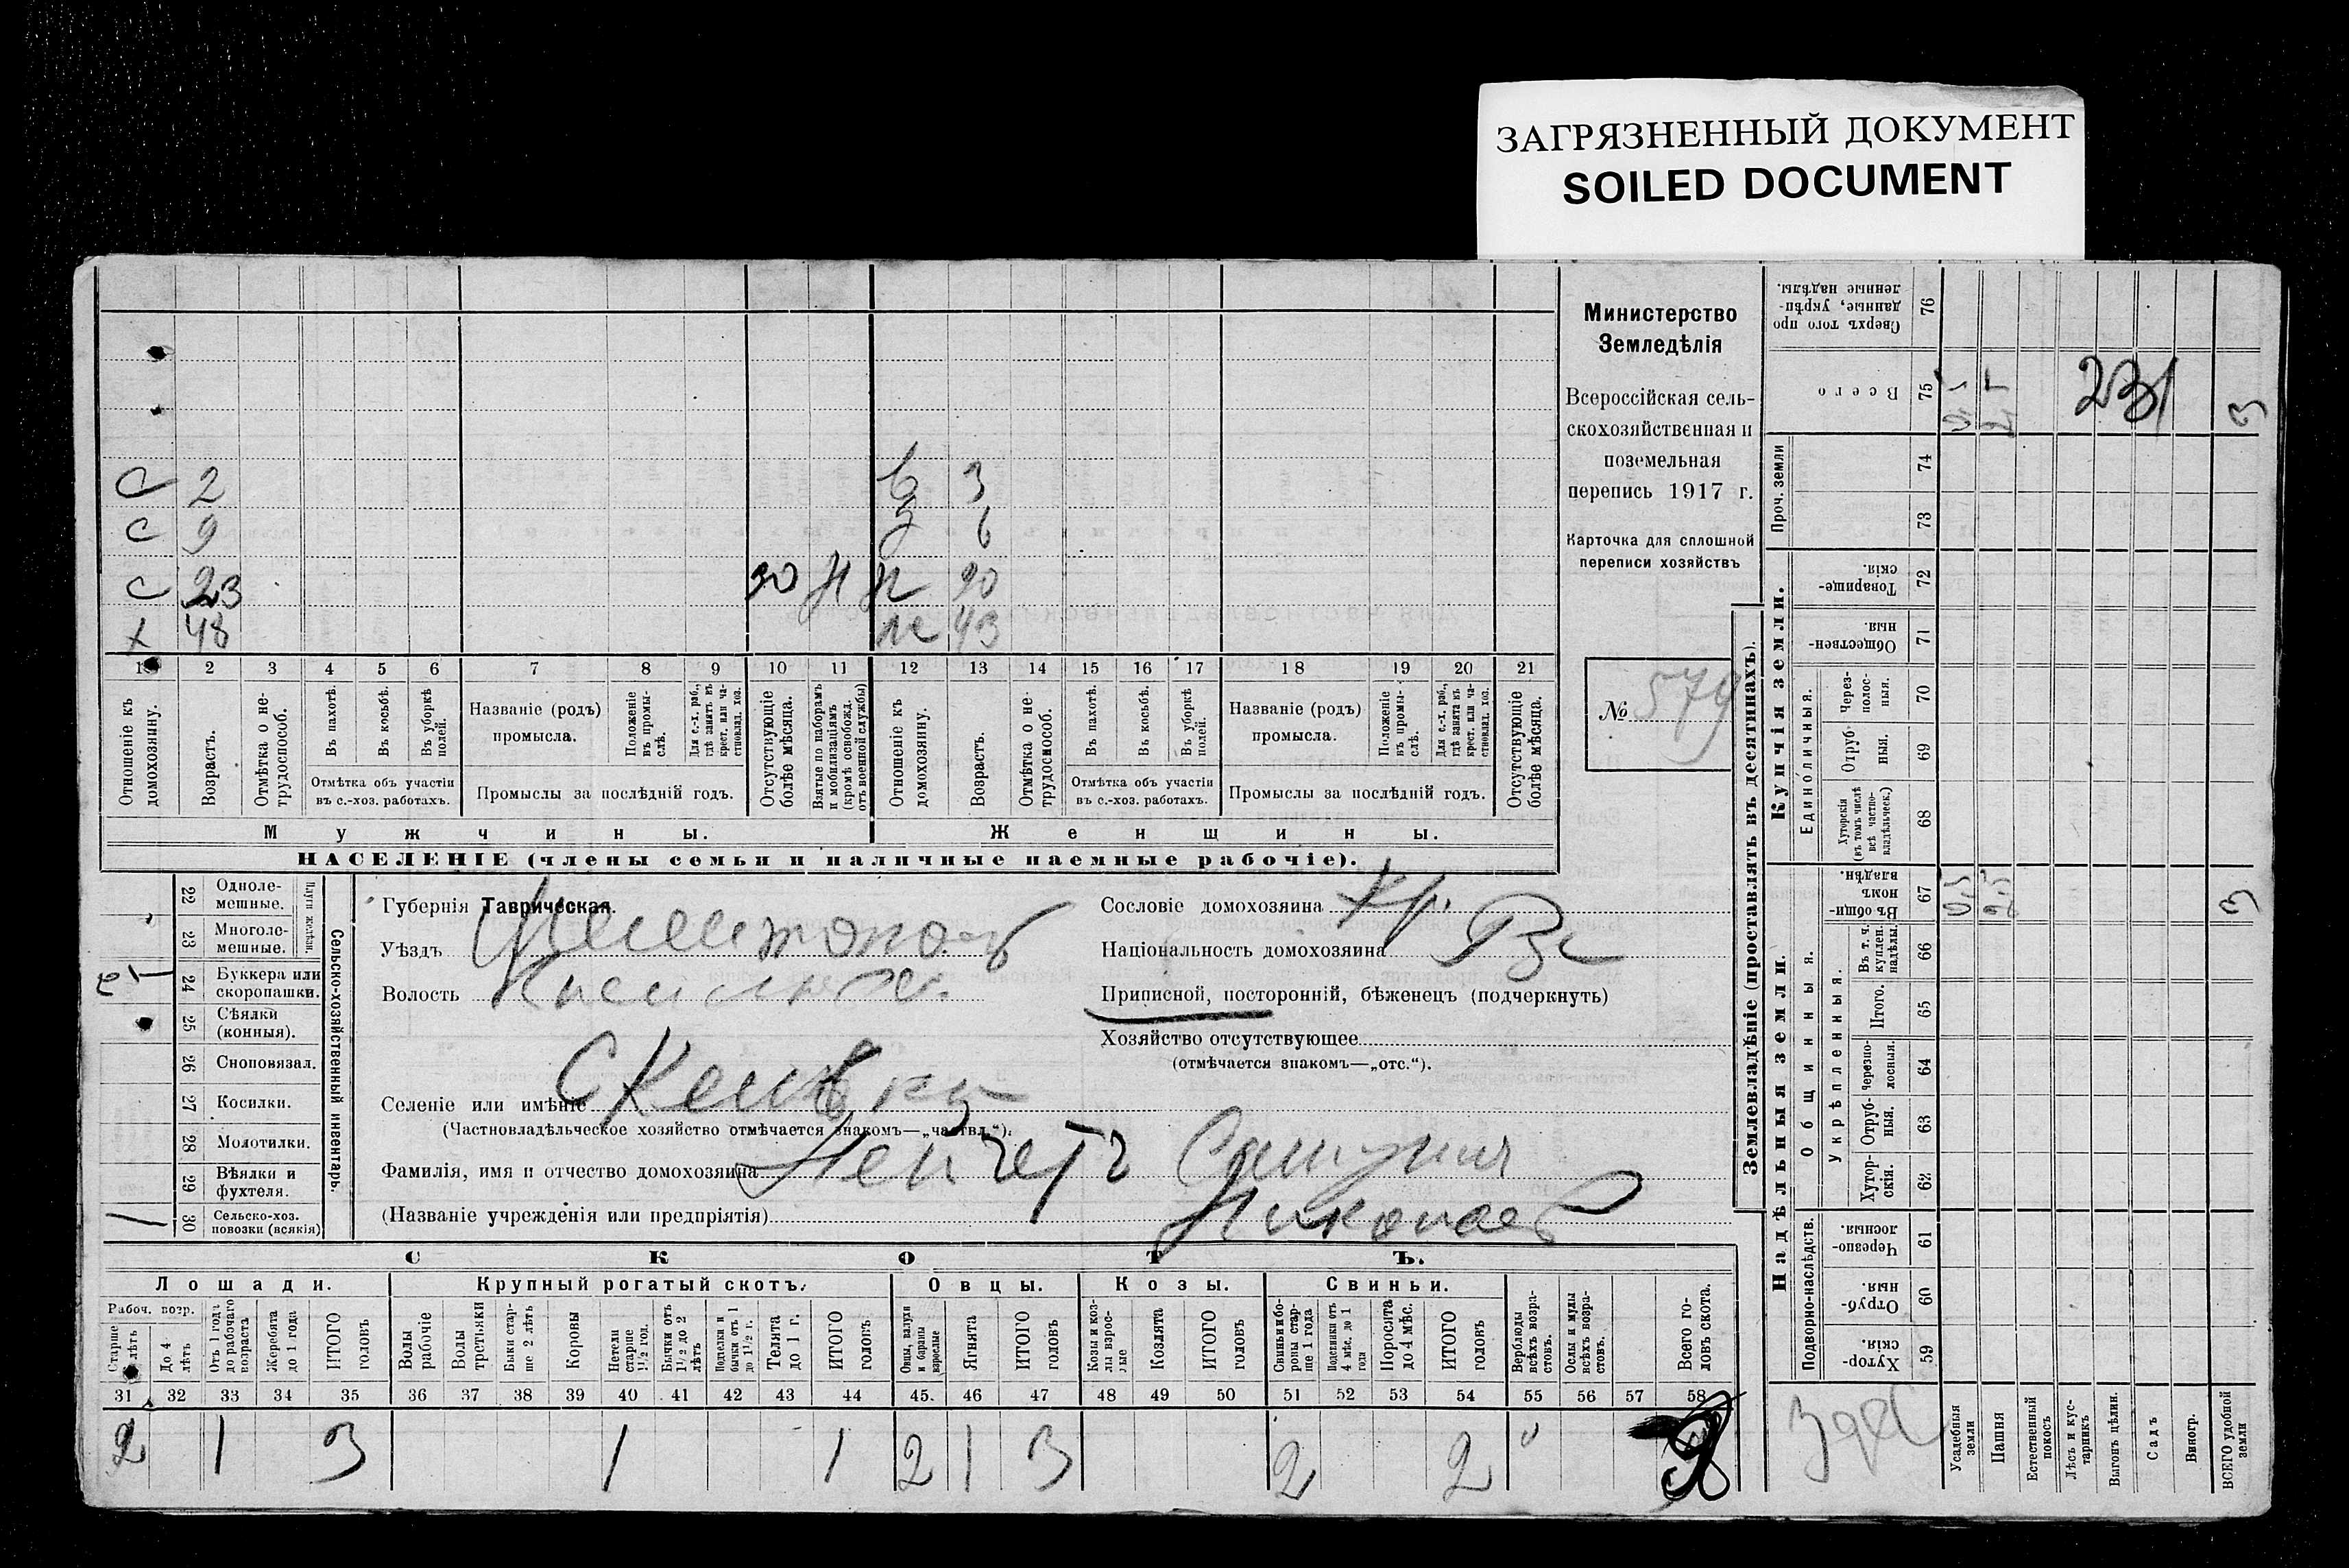 ЗАГРЯЗНЕННЫЙ ДОКУМЕНТ
SOILED DOCUMENT
С 2
С 9
С 23
х 48
3
6
ж 43
1 2 3 4 5 6 7 8 9 10 11 12 13 14 15 16 17 18 19 20 21
Отношеніе къ домохозяину.
Возрастъ.
Отмѣтка о не-трудоспособ.
Въ пахотѣ.
Въ косьбѣ.
Въ уборкѣ полей.
Отмѣтка объ участіи
въ с.-хоз. работахъ.
Названіе (родъ)
промысла.
Положеніе въ промы-слѣ.
Для с.-х. раб., гдѣ занятъ въ крест. или ча-стновлад. хоз.
Промыслы за послѣдній годъ.
Отсутствующіе болѣе мѣсяца.
Взятые по наборамъ и мобилизаціямъ (кромѣ освобожд. отъ военной службы)
Отношеніе къ домохозяину.
Возрастъ.
Отмѣтка о не-трудоспособ.
Въ пахотѣ.
Въ косьбѣ.
Въ уборкѣ полей.
Отмѣтка объ участіи
въ с.-хоз. работахъ.
Названіе (родъ)
промысла.
Положеніе въ промы-слѣ.
Для с.-х. раб., гдѣ занята въ крест. или ча-стновлад. хоз.
Промыслы за послѣдній годъ.
Отсутствующіе болѣе мѣсяца.
Мужчины.
Женщины.
НАСЕЛЕНІЕ (члены семьи и наличные наемные рабочіе).
Министерство
Земледѣлія
Всероссійская сель-
скохозяйственная и
поземельная
перепись 1917 г.
Карточка для сплошной
переписи хозяйствъ
№ 579
22 Одноле-мешные.
23 Многоле-мешные.
Плуги желѣзн.
24 Буккера или скоропашки.
25 Сѣялки (конныя).
26 Сноповязал.
27 Косилки.
28 Молотилки.
29 Вѣялки и фухтеля.
30 Сельско-хоз. повозки (всякія)
Сельско-хозяйственный инвентарь.
Губернія Таврическая.
Уѣздъ
Волость
Селеніе или имѣніе
(Частновладѣльческое хозяйство отмѣчается знакомъ—„частвл.“).
Фамилія, имя и отчество домохозяина
(Названіе учрежденія или предпріятія) Николаев
Сословіе домохозяина Кр.
Національность домохозяина
Приписной, посторонній, бѣженецъ (подчеркнуть)
Хозяйство отсутствующее
(отмѣчается знакомъ—„отс.“).
СКОТЪ.
Лошади.
Крупный рогатый скотъ.
Овцы.
Козы.
Свиньи.
Рабоч. возр.
Старше 4 лѣтъ
До 4 лѣтъ
Отъ 1 года до рабочаго возраста
Жеребята до 1 года
ИТОГО головъ
Волы рабочіе
Волы третьяки
Быки стар-ше 2 лѣтъ
Коровы
Нетели старше 1½ год.
Бычки отъ 1½ до 2 лѣтъ
Подтелки и бычки отъ 1 до 1½ г.
Телята до 1 г.
ИТОГО головъ
Овцы, валухи и бараны взрослые
Ягнята
ИТОГО головъ
Козы и коз-лы взрос-лые
Козлята
ИТОГО головъ
Свиньи и бо-ровы стар-ше 1 года
Подсвинки отъ 4 мѣс. до 1 года
Поросята до 4 мѣс.
ИТОГО головъ
Верблюды всѣхъ возра-стовъ.
Ослы и мулы всѣхъ возра-стовъ.
Всего го-ловъ скота.
31 32 33 34 35 36 37 38 39 40 41 42 43 44 45 46 47 48 49 50 51 52 53 54 55 56 57 58
2 1 3 1 1 2 1 3 2 2
Землевладѣніе (проставлять въ десятинахъ).
Купчія земли.
Надѣльныя земли.
Сверхъ того про-данные, укрѣп-ленные надѣлы. 76
Всего 75
231
3
Проч. земли
74
73
Товарище-скія. 72
Обществен-ныя. 71
Единоличныя.
Через-полос-ныя. 70
Отруб-ныя. 69
Хуторскія (въ томъ числѣ всѣ частно-владѣльческ.) 68
Въ общин-номъ владѣн. 67
3
Общинныя.
Укрѣпленныя.
Въ т. ч. куплен. надѣлы. 66
Итого. 65
Черезпо-лосныя. 64
Отруб-ныя. 63
Хутор-скія. 62
Подворно-наслѣдств.
Черезпо-лосныя. 61
Отруб-ныя. 60
Хутор-скія. 59
Усадебныя земли
Пашня
Естественный покосъ
Лѣсъ и кус-тарникъ
Выгонъ цѣлин.
Садъ
Виногр.
ВСЕГО удобной земли